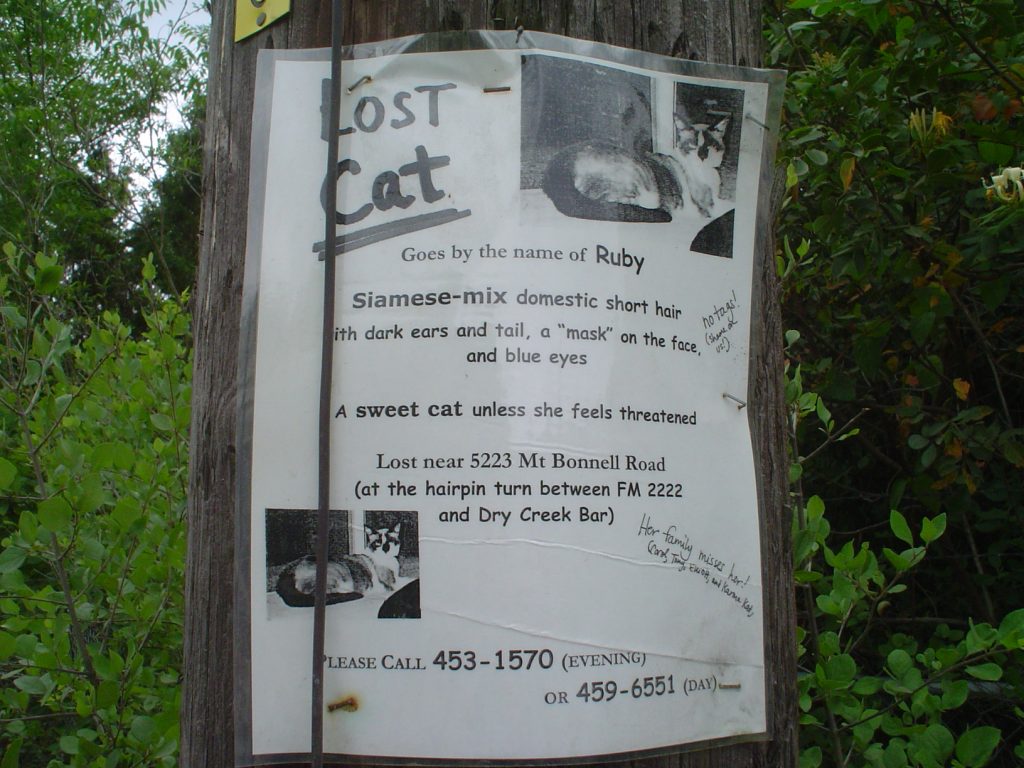 LOST
Cat
Goes by the name of Ruby
Siamese-mix domestic short hair
ith dark ears and tail, a “mask” on the face,
and blue eyes
no tags!
(shame on
us!)
A sweet cat unless she feels threatened
Lost near 5223 Mt Bonnell Road
(at the hairpin turn between FM 2222
and Dry Creek Bar)
Her family misses her!
and Karma Kat)
PLEASE CALL 453-1570 (EVENING)
OR 459-6551 (DAY)